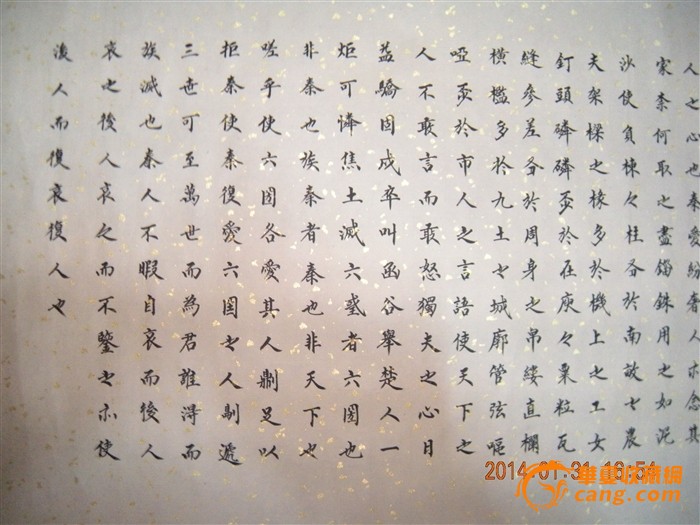 人之心也秦愛紛奢人亦念其
家奈何取之盡錙銖用之如泥
沙使負棟々柱多於南畝之農
夫架樑之椽多於機上之工女
釘頭磷磷多於在庾々粟粒瓦
縫參差多於周身之帛縷直欄
橫檻多於九土之城廓管弦嘔
啞多於市人之言語使天下之
人不敢言而敢怒獨夫之心日
益驕固戍卒叫函谷舉楚人一
炬可憐焦土滅六國者六國也
非秦也族秦者秦也非天下也
嗟乎使六國各愛其人則足以
拒秦使秦復愛六國之人則遞
三世可至萬世而為君誰得而
族滅也秦人不暇自哀而後人
哀之後人哀之而不鑒之亦使
後人而復哀復人也
2014.01.31 16:54
華夏收藏網
cang.com